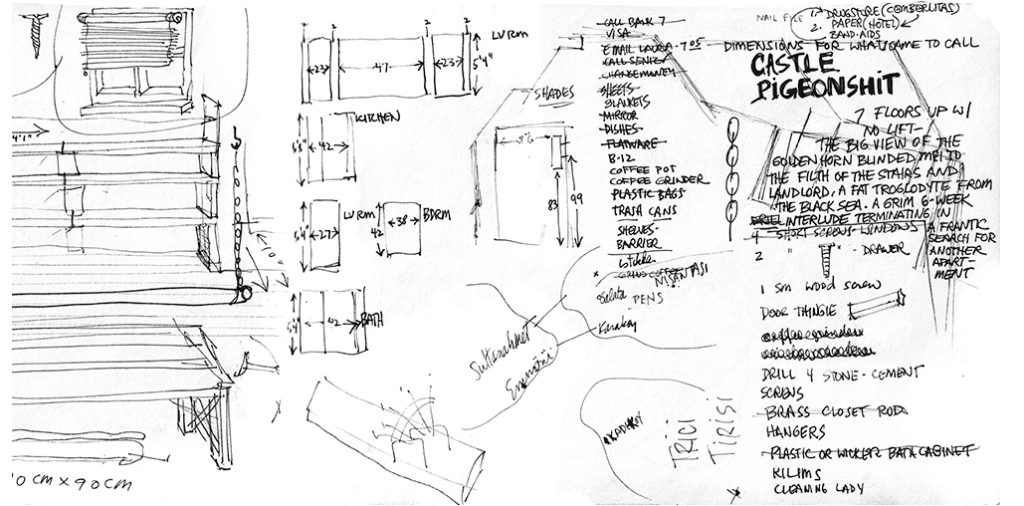 NAIL FILE
1. DRUGSTORE (COMBERLITAS)
2. PAPER (HOTEL)
BAND-AIDS
DIMENSIONS FOR WHAT CAME TO CALL
CASTLE
PIGEONSHIT
7 FLOORS UP W/
NO LIFT-
THE BIG VIEW OF THE
GOLDEN HORN BLINDED ME TO
THE FILTH OF THE STAIRS AND
LANDLORD, A FAT TROGLODYTE FROM
THE BLACK SEA. A GRIM 6-WEEK
INTERLUDE TERMINATING IN
A FRANTIC
SERACH FOR
ANOTHER
APART-
MENT
4 SHORT SCREWS-WINDOWS
2 " " - DRAWER
1 SM WOOD SCREW
DOOR THINGIE
DRILL 4 STONE-CEMENT
SCREWS
BRASS CLOSET ROD
HANGERS
PLASTIC OR WICKER BATH CABINET
KILIMS
CLEANING LADY
CALL BANK 7
VISA
EMAIL LAURA · 7 05
CALL SENIZ
CHANGE MONEY
SHEETS
BLANKETS
MIRROR
DISHES
FLATWARE
B-12
COFFEE POT
COFFEE GRINDER
PLASTIC BAGS
TRASH CANS
SHELVES-
BARRIER
GRIND COFFEE
NISANTASI
PENS
Galata
Karakoy
Sultanahmet
Eminönü
KADIKOY
TRICI
TIRISI
7 SHADES
83
99
2
2
LV Rm
23
47
23
5'4"
KITCHEN
5'8"
42
LV Rm
5'4"
27
BDRM
42
38
BATH
5'4"
42
4'1"
10"
0 CM X 90 CM